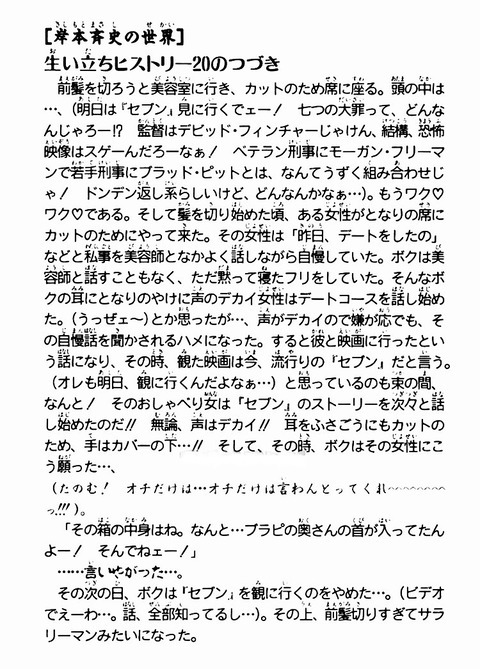 [岸本斉史の世界]
生い立ちヒストリー20のつづき
前髪を切ろうと美容室に行き、カットのため席に座る。頭の中は
…、(明日は『セブン』見に行くでェー! 七つの大罪って、どんな
んじゃろー!? 監督はデビッド・フィンチャーじゃけん、結構、恐怖
映像はスゲーんだろーなぁ! ベテラン刑事にモーガン・フリーマ
ンで若手刑事にブラッド・ピットとは、なんてうずく組み合わせじ
ゃ! ドンデン返し系らしいけど、どんなんかなぁ…)。もうワク♡
ワク♡である。そして髪を切り始めた頃、ある女性がとなりの席に
カットのためにやって来た。その女性は「昨日、デートをしたの」
などと私事を美容師となかよく話しながら自慢していた。ボクは美
容師と話すこともなく、ただ黙って寝たフリをしていた。そんなボ
クの耳にとなりのやけに声のデカイ女性はデートコースを話し始め
た。(うっぜェ〜)とか思ったが…、声がデカイので嫌が応でも、そ
の自慢話を聞かされるハメになった。すると彼と映画に行ったとい
う話になり、その時、観た映画は今、流行りの『セブン』だと言う。
(オレも明日、観に行くんだよなぁ…)と思っているのも束の間、
なんと! そのおしゃべり女は『セブン』のストーリーを次々と話
し始めたのだ!! 無論、声はデカイ!! 耳をふさごうにもカットの
ため、手はカバーの下…!! そして、その時、ボクはその女性にこ
う願った…、
(たのむ! オチだけは…オチだけは言わんとってくれ〜〜〜〜〜〜〜
っ!!!)。
「その箱の中身はね。なんと…ブラピの奥さんの首が入ってたん
よー! そんでねェー!」
……言いやがった…。
その次の日、ボクは『セブン』を観に行くのをやめた…。(ビデオ
でえーわ…。話、全部知ってるし…)。その上、前髪切りすぎてサラ
リーマンみたいになった。